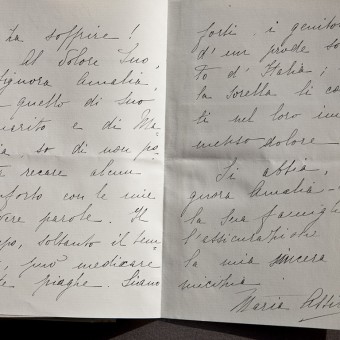 ha soffrire!
Al dolore Suo,
signora Amalia,
quello di Suo
marito e di Ma
ia so di non po
recare alcun
nforto con le mie
vere parole. Il
po, soltanto il tem
può medicare
te piaghe. Siano
forti i genitor
d'un prode so
to d'Italia;
la sorella li co
ti nel loro im
menso dolore
Si abbia,
gnora Amalia
la Sua famigl
l'assicurazione
la mia sincera
micizia!
Maria